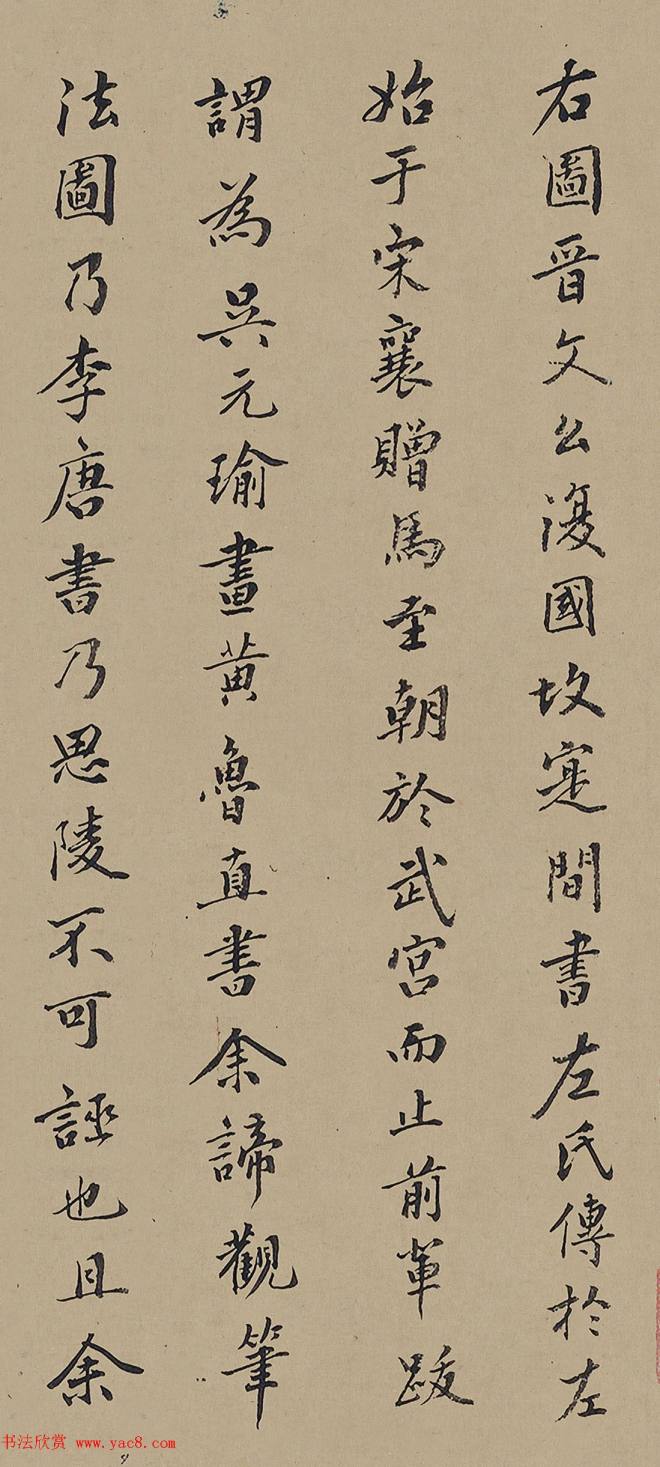 右圖晉文公復國故寔間書左氏傳於左
始于宋襄贈馬至朝於武宮而止前軰跋
謂為吳元瑜畫黃魯直書余諦觀筆
法圖乃李唐書乃思陵不可誣也且余
书法欣赏 www.yac8.com